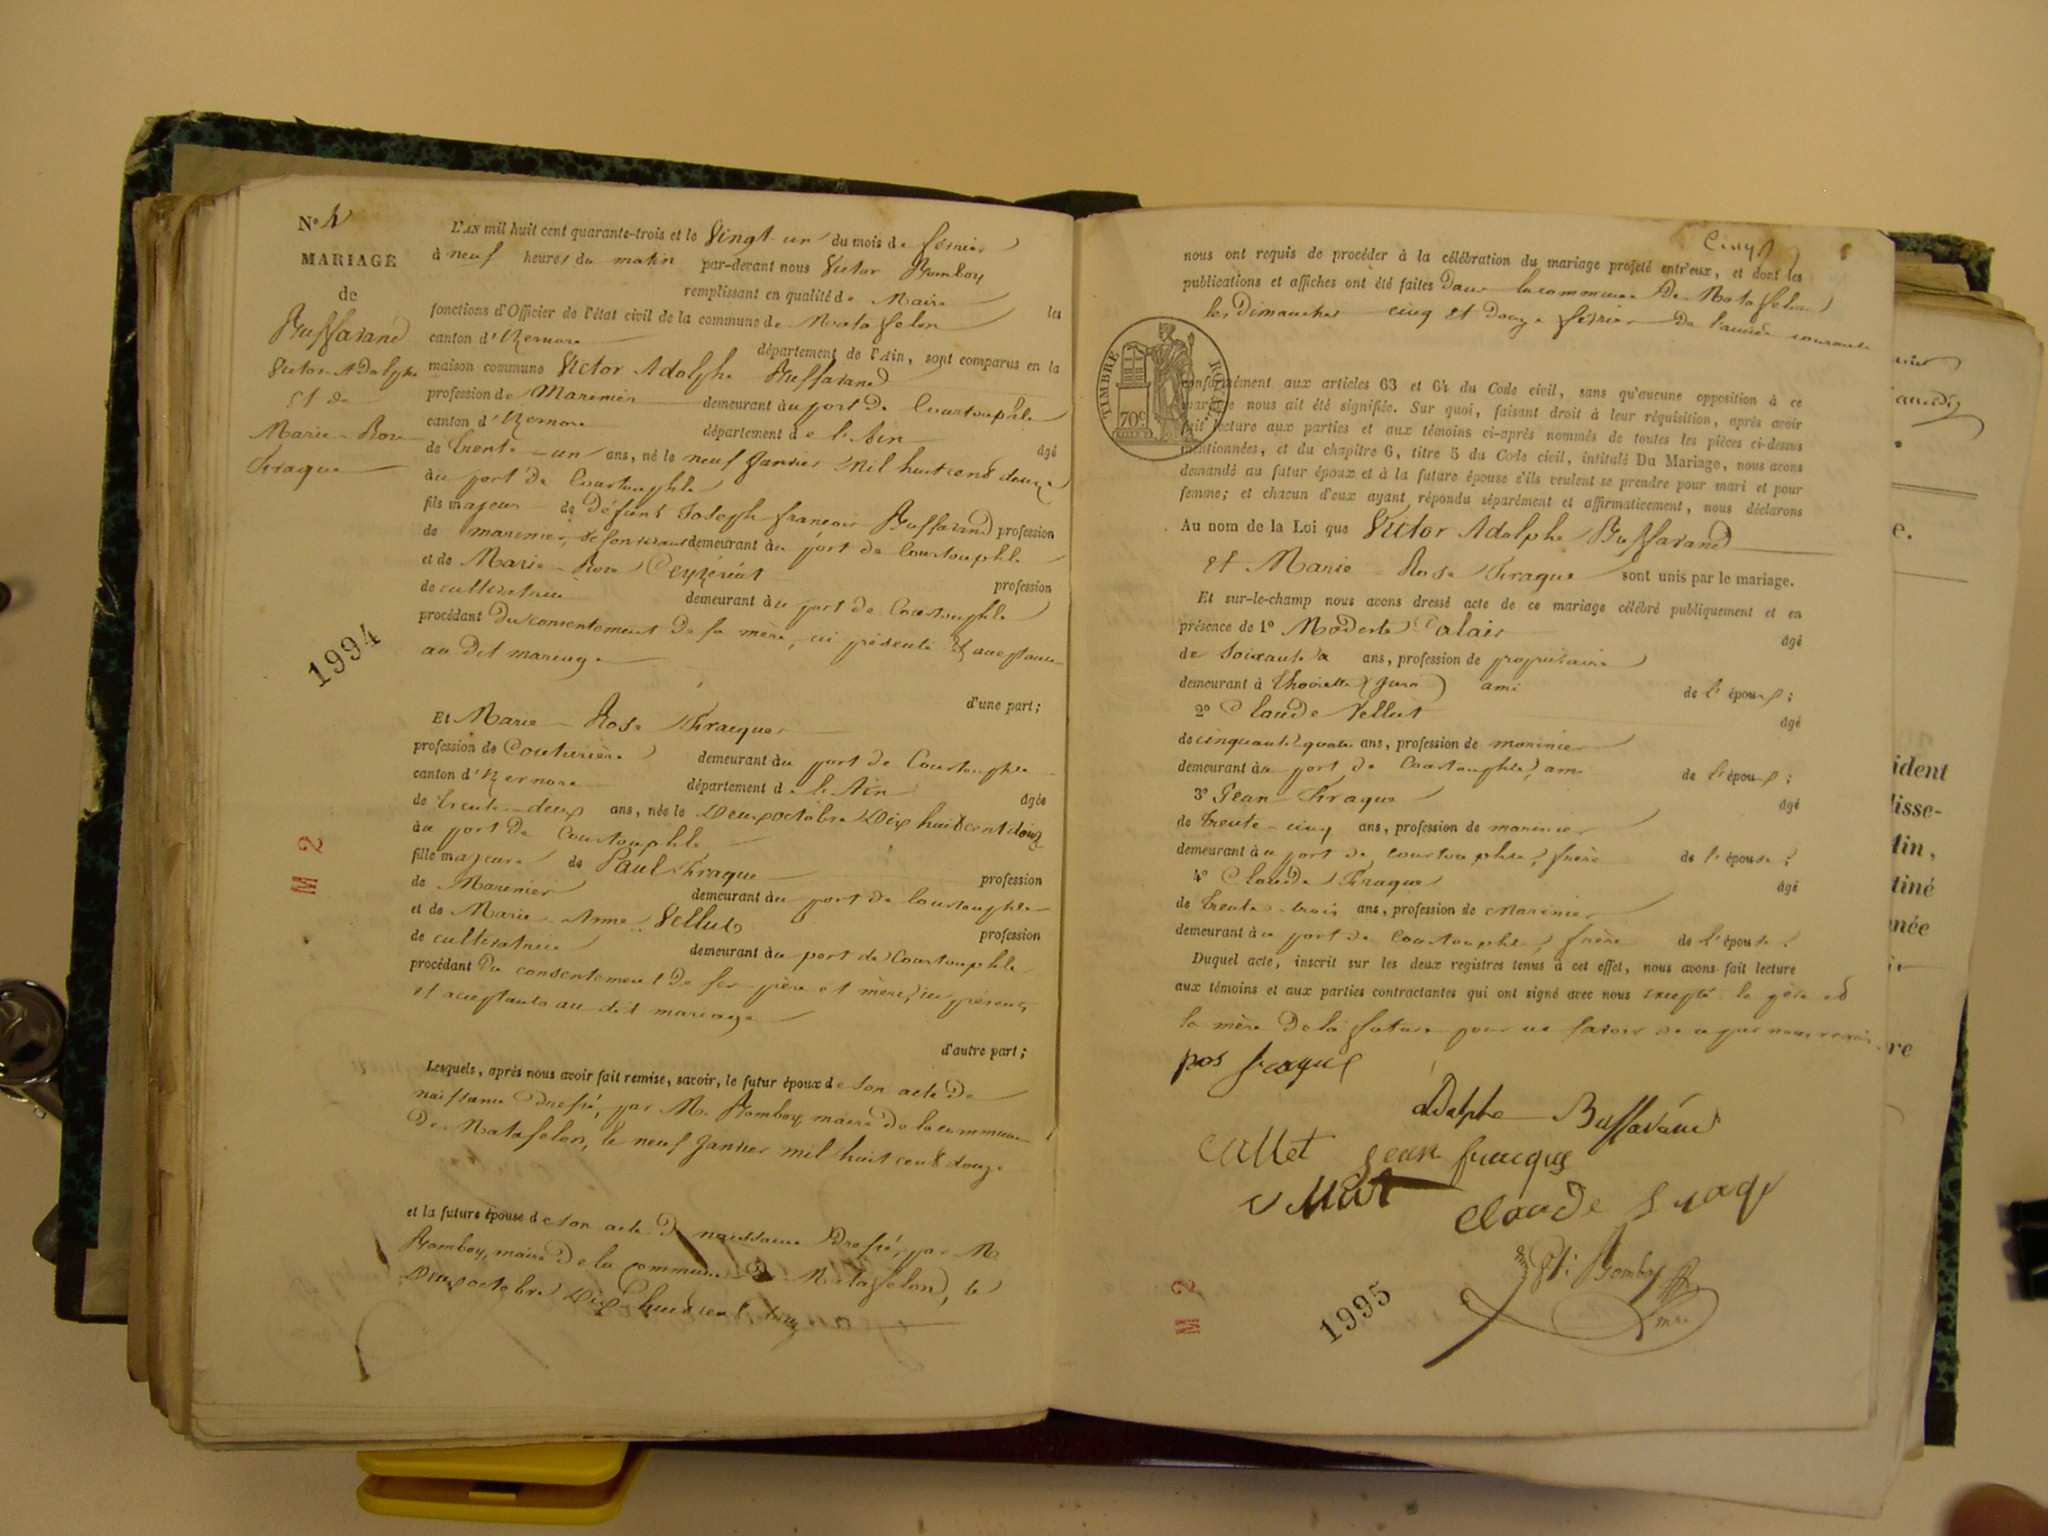 N° 4
MARIAGE
de
Buffavand
Victor Adolphe
et de
Marie Rose
Fraque
1994
M 2
L'AN mil huit cent quarante-trois et le Vingt un du mois de février
à neuf heures du matin par-devant nous Victor Bomboy
remplissant en qualité de Maire les
fonctions d'Officier de l'état civil de la commune de Matafelon
canton d'Izernore département de l'Ain, sont comparus en la
maison commune Victor Adolphe Buffavand
profession de Marinier demeurant àu port de Courtouphle
canton d'Izernore département de l'Ain âgé
de trente-un ans, né le neuf Janvier Mil huit cent douze
àu port de Courtouphle
fils majeur de Défunt Joseph françois Buffavand profession
de marinier, de son vivant demeurant àu port de Courtouphle
et de Marie Rose profession
de cultivatrice demeurant àu port de Courtouphle
procédant Du consentement De sa mère, ici présente et acceptante
au Dit mariage
d'une part;
Et Marie Rose Fracque
profession de Couturière demeurant àu port de Courtouphle
canton d'Izernore département de l'Ain âgée
de trente-deux ans, née le Deux octobre Dix huit cent
àu port de Courtouphle
fille majeure de Paul Fraque profession
de Marinier demeurant àu port de Courtouphle
et de Marie Anne Vellut profession
de cultivatrice demeurant àu port de Courtouphle
procédant Du consentement De ses père et mère, ici présents
et acceptants au dit mariage
d'autre part;
Lesquels, après nous avoir fait remise, savoir, le futur époux de son acte De
naissance Dressé, par M. Bomboy, maire De la commune
De Matafelon, le neuf Janvier mil huit cent douze
et la future épouse de son acte De naissance Dressé, par M.
Bomboy, maire De la commune De Matafelon, le
Deux octobre Dix huit cent
Cinq
nous ont requis de procéder à la célébration du mariage projeté entr'eux, et dont les
publications et affiches ont été faites Dans la commune De Matafelon
les Dimanches cinq et Douze février De l'année courante
TIMBRE ROYAL
70c
conformément aux articles 63 et 64 du Code civil, sans qu'aucune opposition à ce
mariage nous ait été signifiée. Sur quoi, faisant droit à leur réquisition, après avoir
fait lecture aux parties et aux témoins ci-après nommés de toutes les pièces ci-dessus
mentionnées, et du chapitre 6, titre 5 du Code civil, intitulé Du Mariage, nous avons
demandé au futur époux et à la future épouse s'ils veulent se prendre pour mari et pour
femme; et chacun d'eux ayant répondu séparément et affirmativement, nous déclarons
Au nom de la Loi que Victor Adolphe Buffavand
et Marie Rose Fraque sont unis par le mariage.
Et sur-le-champ nous avons dressé acte de ce mariage célébré publiquement et en
présence de 1° Modeste âgé
de Soixante ans, profession de propriétaire
demeurant à Thoirette (Jura) ami de l'époux;
2° Claude Vellut âgé
de cinquante quatre ans, profession de marinier
demeurant àu port de Courtouphle, ami de l'époux;
3° Jean Fraque âgé
de trente-cinq ans, profession de marinier
demeurant àu port de Courtouphle, frère de l'épouse;
4° Claude Fraque âgé
de trente-trois ans, profession de Marinier
demeurant àu port de Courtouphle, frère de l'épouse;
Duquel acte, inscrit sur les deux registres tenus à cet effet, nous avons fait lecture
aux témoins et aux parties contractantes qui ont signé avec nous excepté le père et
la mère De la future pour ne savoir de ce par nous requis
Adolphe Buffavand
jean fracque
Claude
Bomboy
1995
M 2